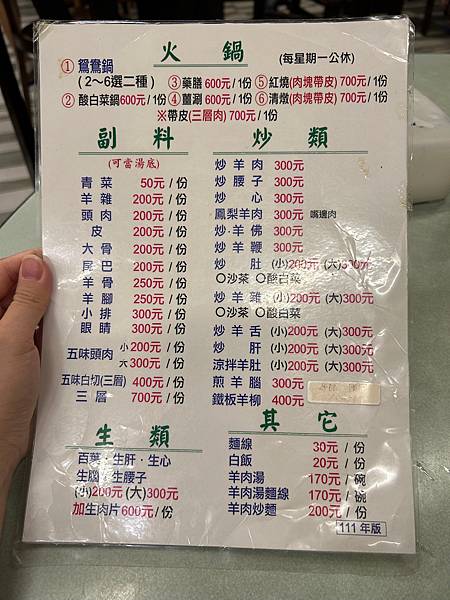 火鍋 (每星期一公休)
①鴛鴦鍋
(2～6選二種) ③藥膳600元/1份 ⑤紅燒(肉塊帶皮)700元/1份
②酸白菜鍋600元/1份 ④薑涮600元/1份 ⑥清燉(肉塊帶皮)700元/1份
※帶皮(三層肉)700元/1份
副料
(可當湯底)
青菜 50元/份
羊雜 200元/份
頭肉 200元/份
皮 200元/份
大骨 200元/份
尾巴 200元/份
羊骨 250元/份
羊腳 250元/份
小排 300元/份
眼睛 300元/份
五味頭肉 小200元/份
大300元/份
五味白切(三層) 400元/份
三層 700元/份
炒類
炒羊肉 300元
炒腰子 300元
炒心 300元
鳳梨羊肉 300元 嘴邊肉
炒·羊佛 300元
炒羊鞭 300元
炒肚 (小)200元 (大)300元
○沙茶 ○酸白菜
炒羊雜 (小)200元 (大)300元
○沙茶 ○酸白菜
炒羊舌 (小)200元 (大)300元
炒肝 (小)200元 (大)300元
涼拌羊肚 (小)200元 (大)300元
煎羊腦 300元
鐵板羊柳 400元
生類
百葉·生肝·生心
生腸·生腰子
(小)200元 (大)300元
加生肉片600元/份
其它
麵線 30元/份
白飯 20元/份
羊肉湯 170元/碗
羊肉湯麵線 170元/碗
羊肉炒麵 200元/份
111年版